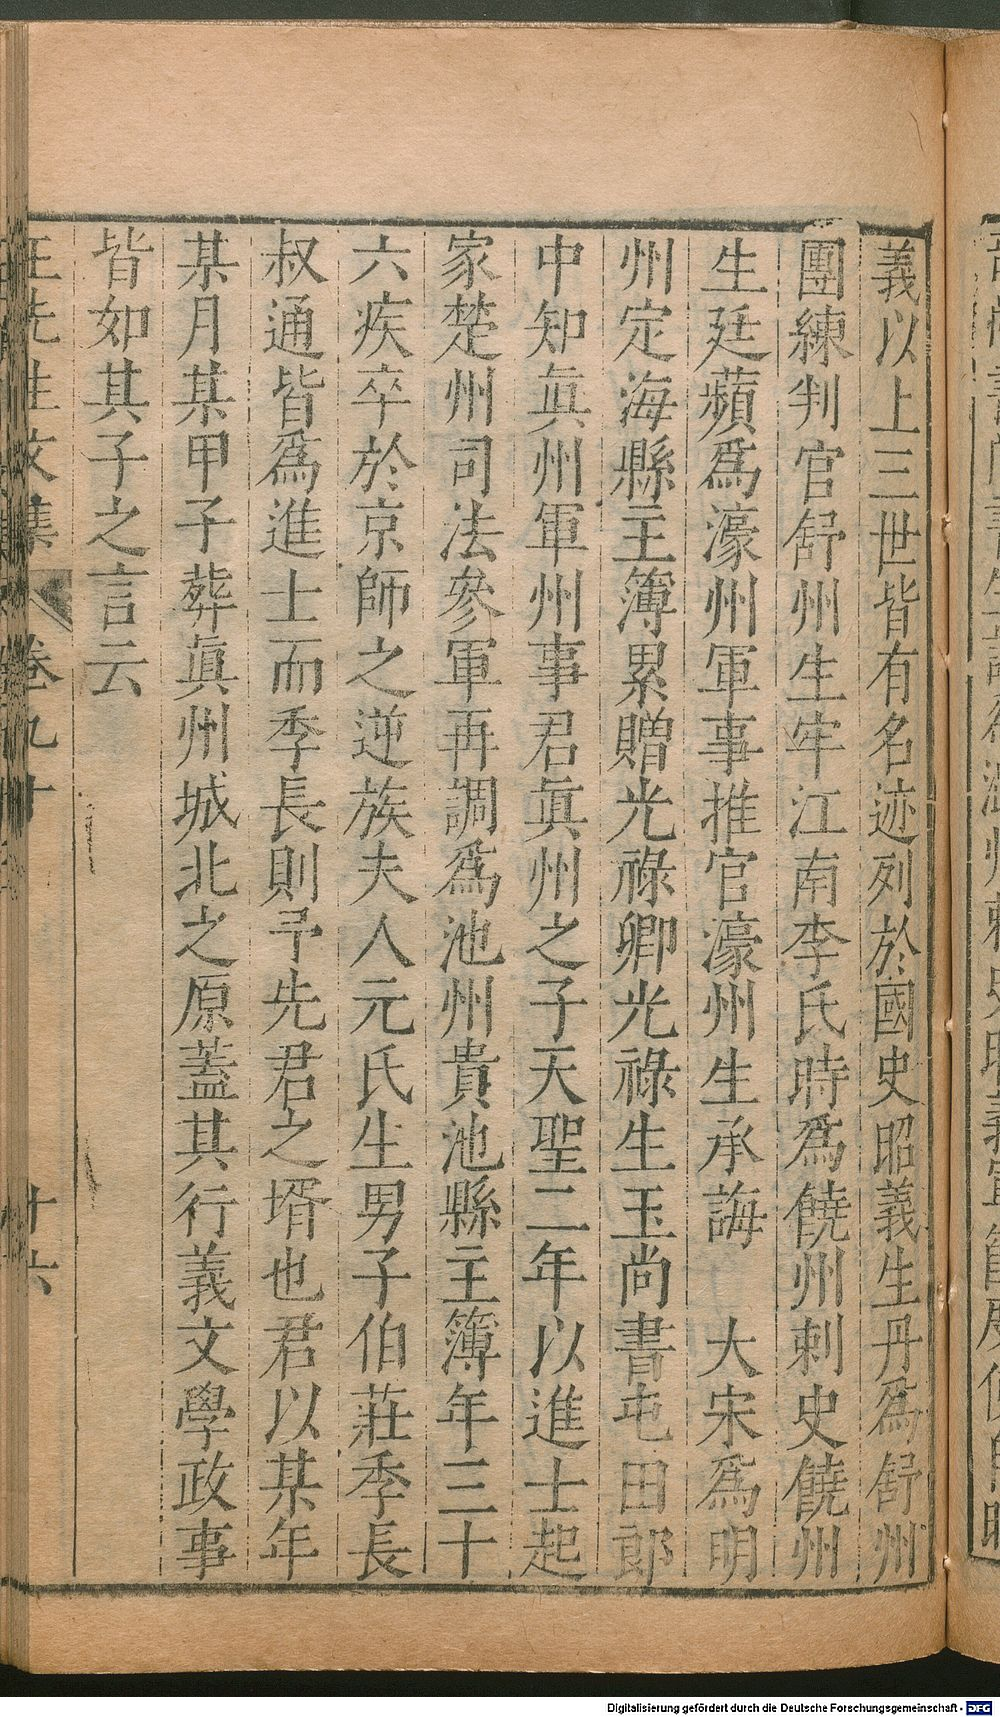 義以上三世皆有名迹列於國史昭義生丹爲舒州
團練判官舒州生牢江南李氏時爲饒州刺史饒州
生廷蘋爲濠州軍事推官濠州生承誨　大宋爲明
州定海縣主簿累贈光祿卿光祿生玉尚書屯田郎
中知眞州軍州事君眞州之子天聖二年以進士起
家楚州司法參軍再調爲池州貴池縣主簿年三十
六疾卒於京師之逆族夫人元氏生男子伯莊季長
叔通皆爲進士而季長則予先君之壻也君以某年
某月某甲子葬眞州城北之原蓋其行義文學政事
皆如其子之言云
王先生文集 卷九十 十六
Digitalisierung gefördert durch die Deutsche Forschungsgemeinschaft - DFG